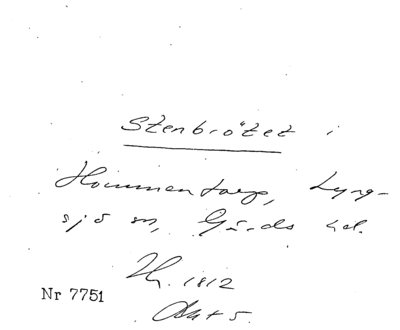 Stenbrötet i
Hommentorp, Lyng-
sjö sn, Gärds hd.
1812
Nr 7751
Akt 5.